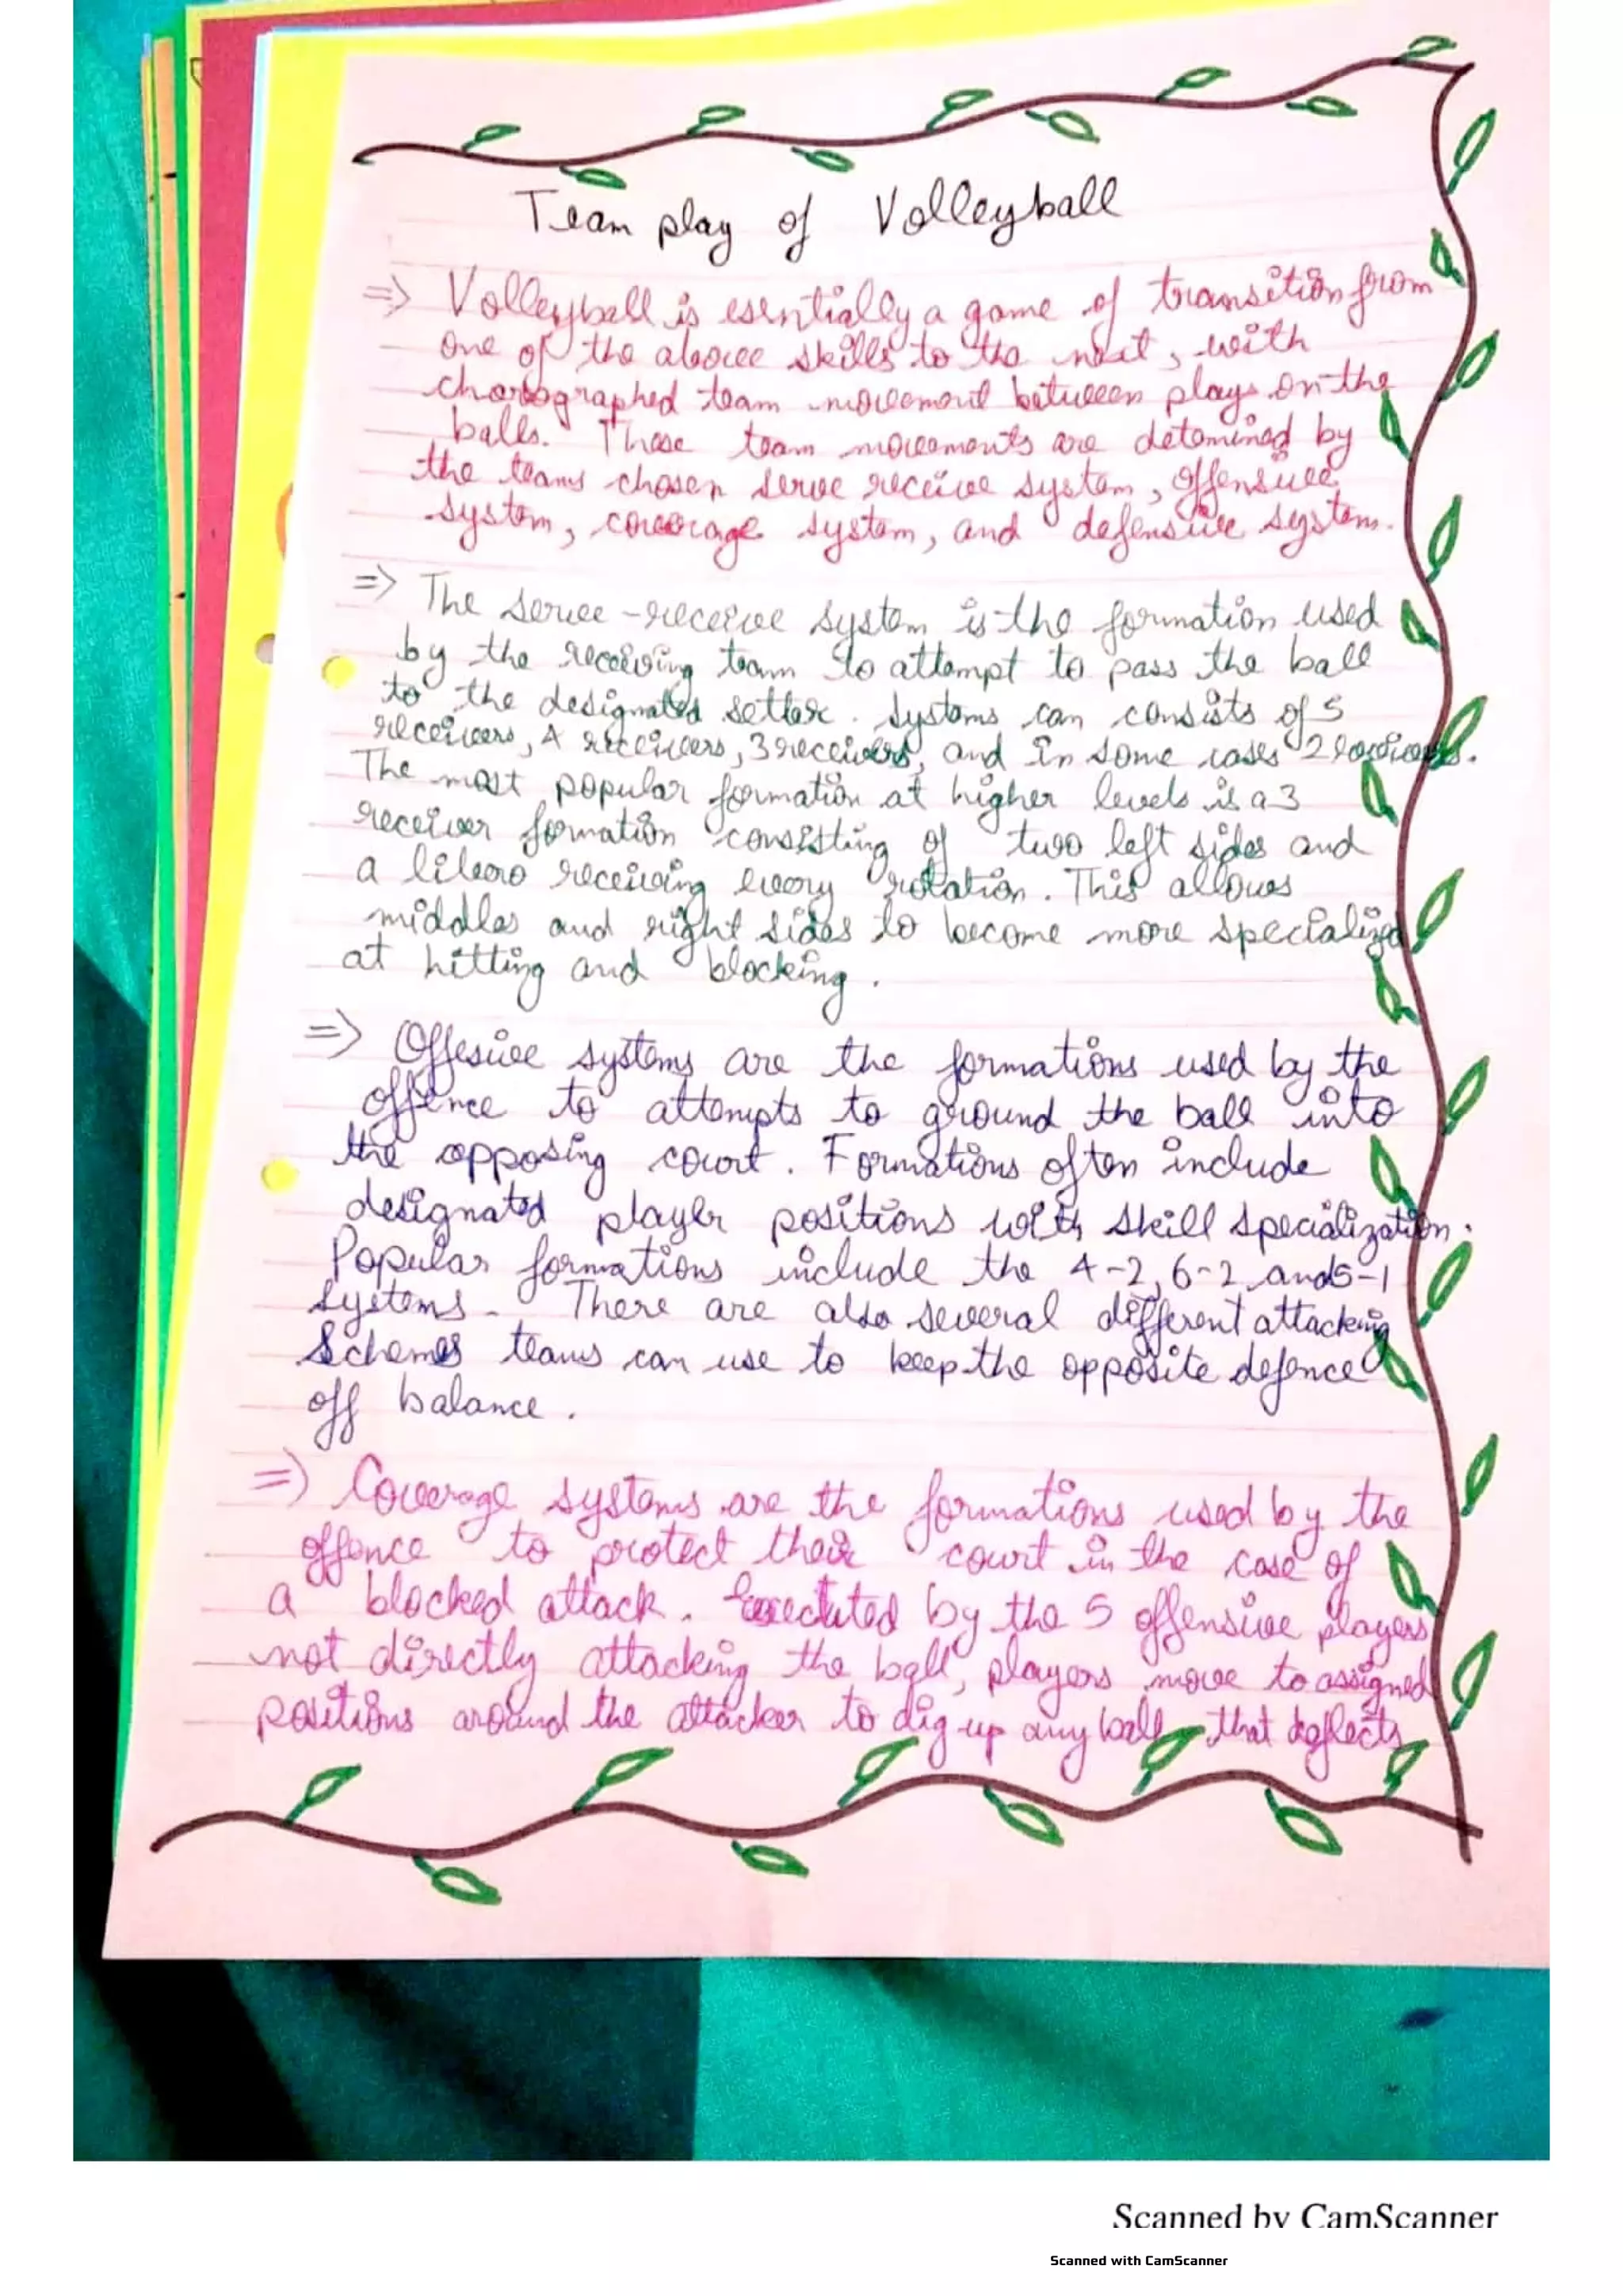 Team play of Volleyball
=> Volleyball is esentially a game of transition from
one of the above skills to the next, with
chorographed team movement between plays on the
balls. These team movements are detemined by
the teams chosen serve receive system, offensive
system, coverage system, and defensive system.
=> The serve-receive system is the formation used
by the receiving team to attempt to pass the ball
to the designated setter. Systems can consists of 5
receivers, 4 receivers, 3 receivers, and in some cases 2 receivers.
The most popular formation at higher levels is a 3
receiver formation consisting of two left sides and
a libero receiving every rotation. This allows
middles and right sides to become more specialized
at hitting and blocking.
=> Offesive systems are the formations used by the
offence to attempts to ground the ball into
the opposing court. Formations often include
designated player positions with skill specialization.
Popular formations include the 4-2, 6-2 and 5-1
systems. There are also several different attacking
Schemes teams can use to keep the opposite defence
off balance.
=> Coverage systems are the formations used by the
offence to protect their court in the case of
a blocked attack. Executed by the 5 offensive players
not directly attacking the ball, players move to assigned
positions around the attacker to dig up any ball that deflects
Scanned by CamScanner
Scanned with CamScanner